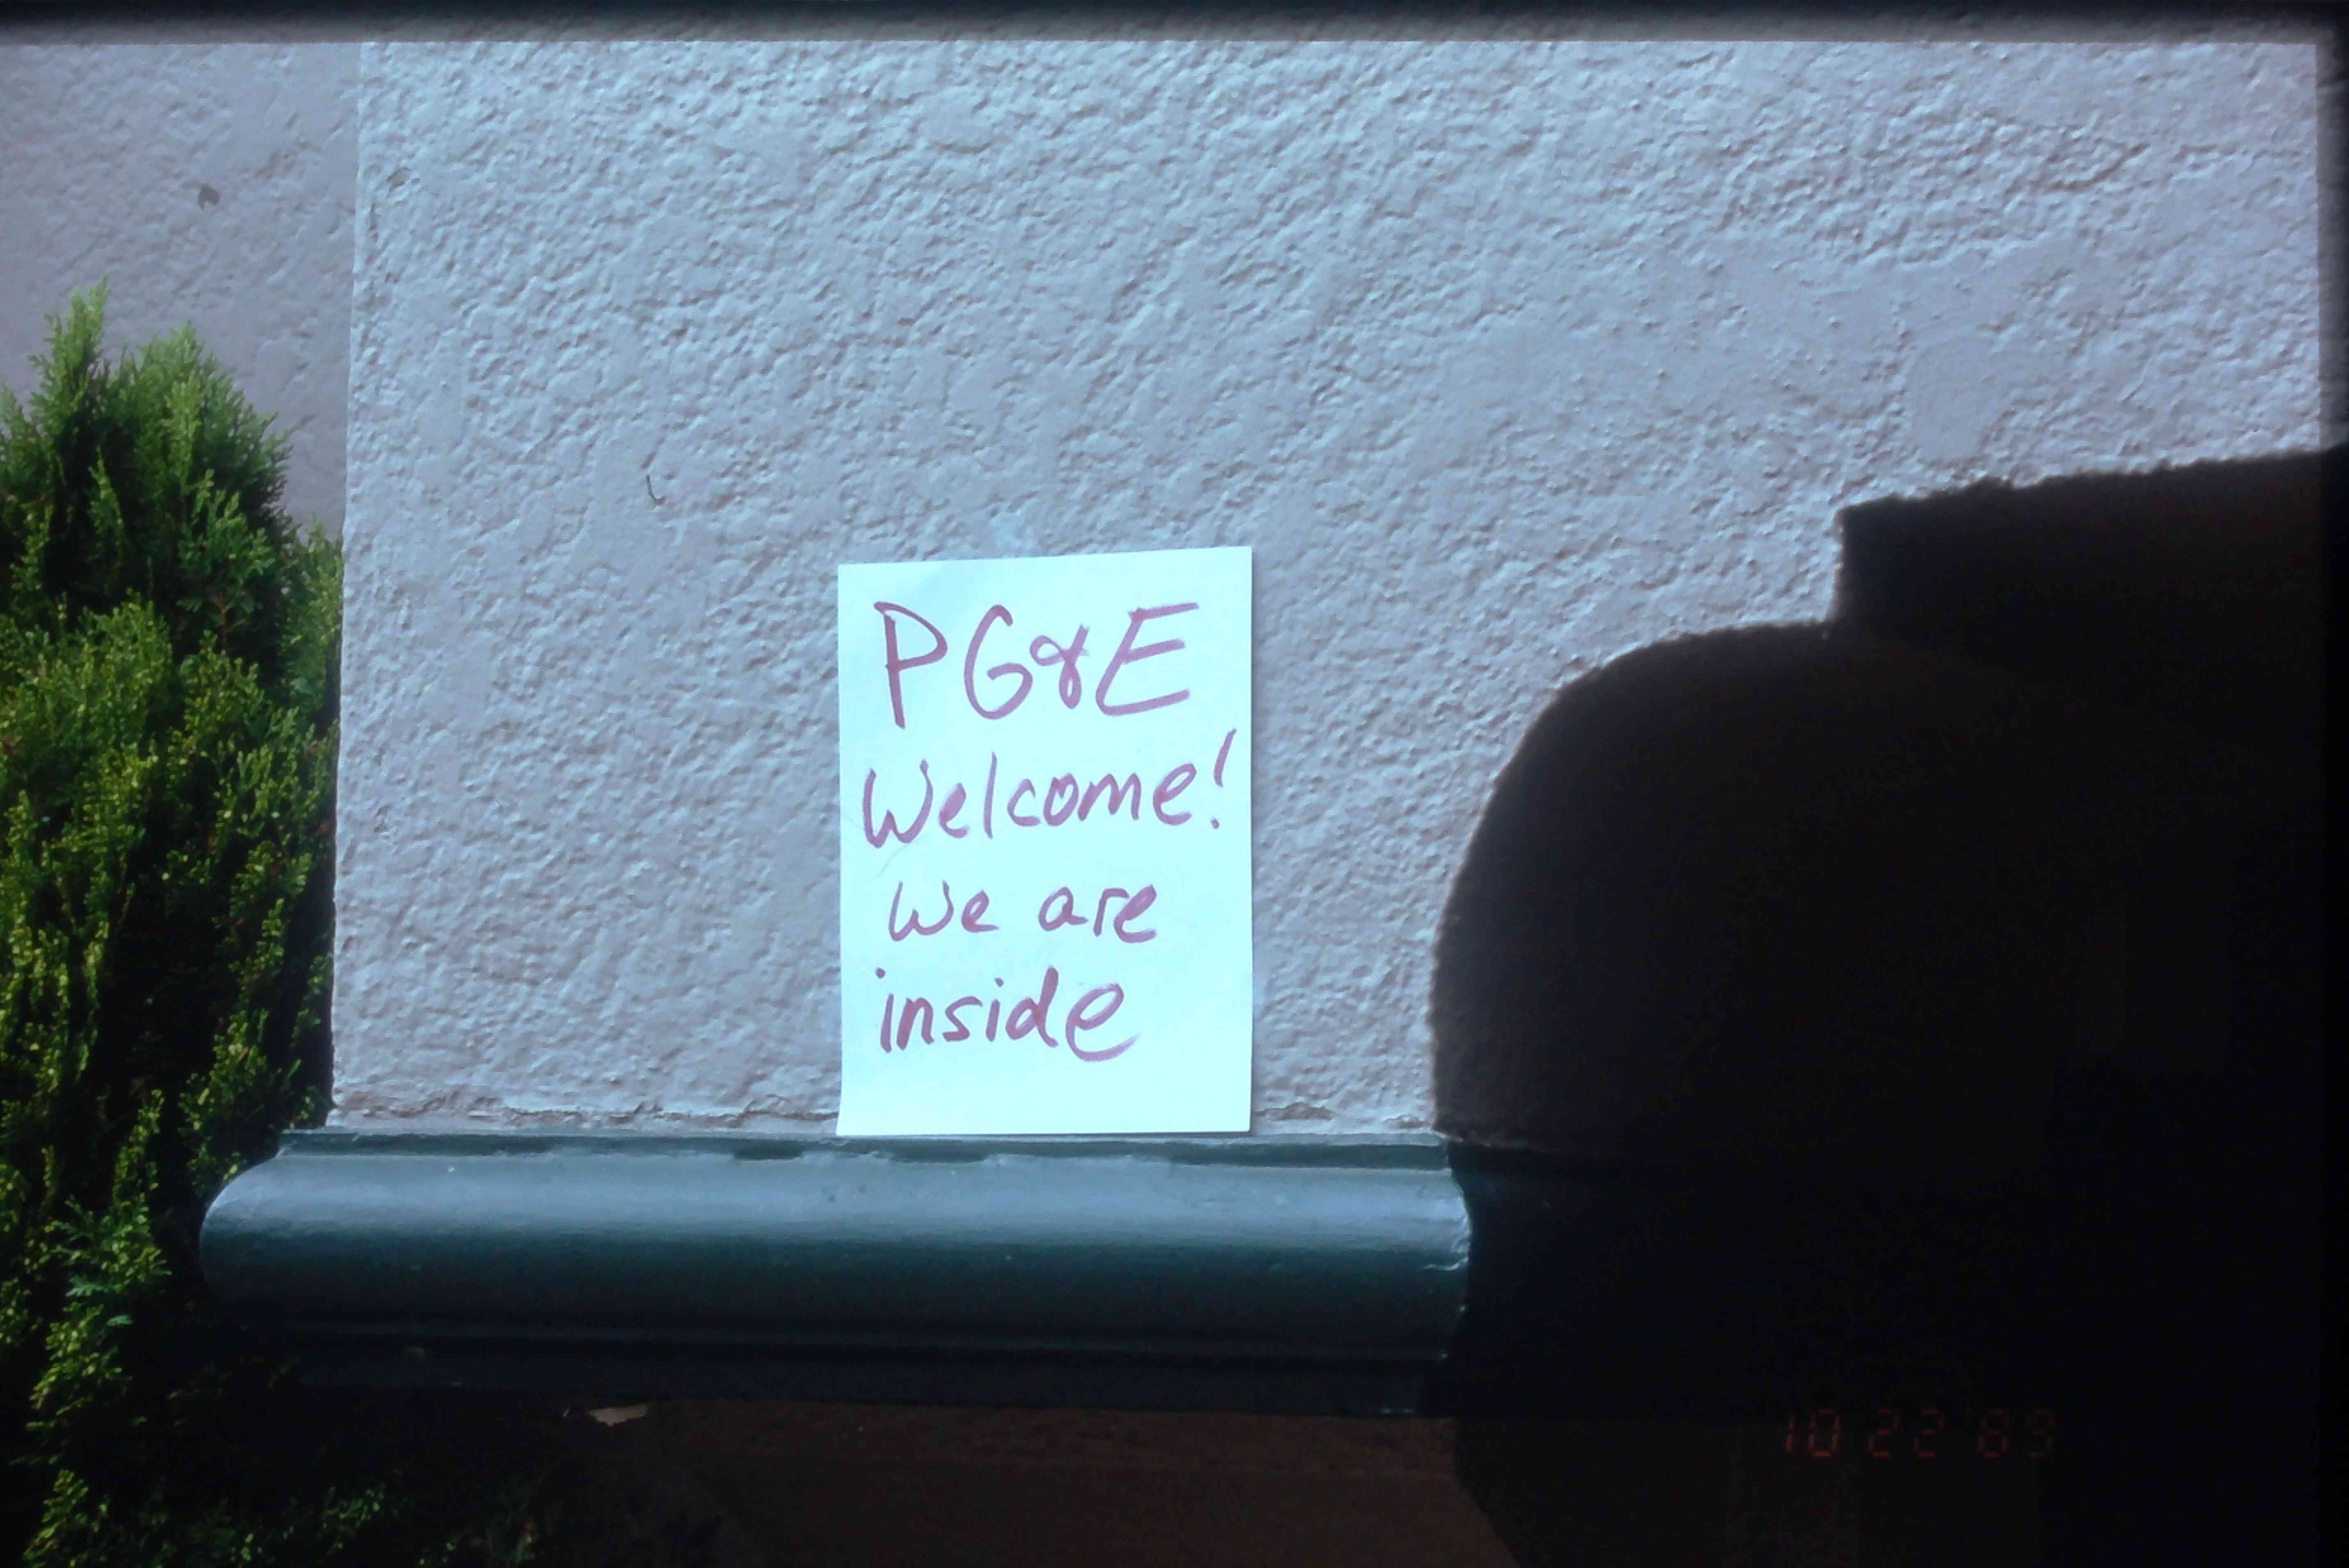 PG&E
Welcome!
We are
inside
10 22 '89